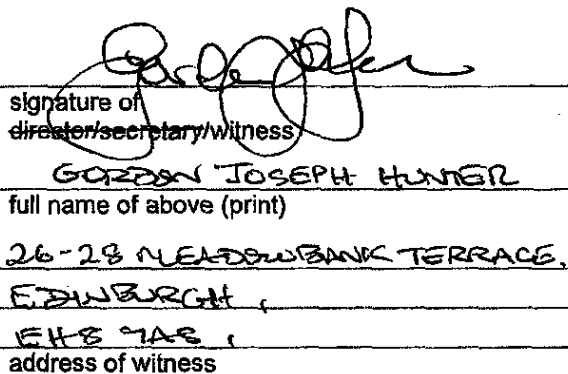 signature of
director/secretary/witness
GORDON JOSEPH HUNTER
full name of above (print)
26-28 MEADOWBANK TERRACE,
EDINBURGH,
EH8 7AS,
address of witness